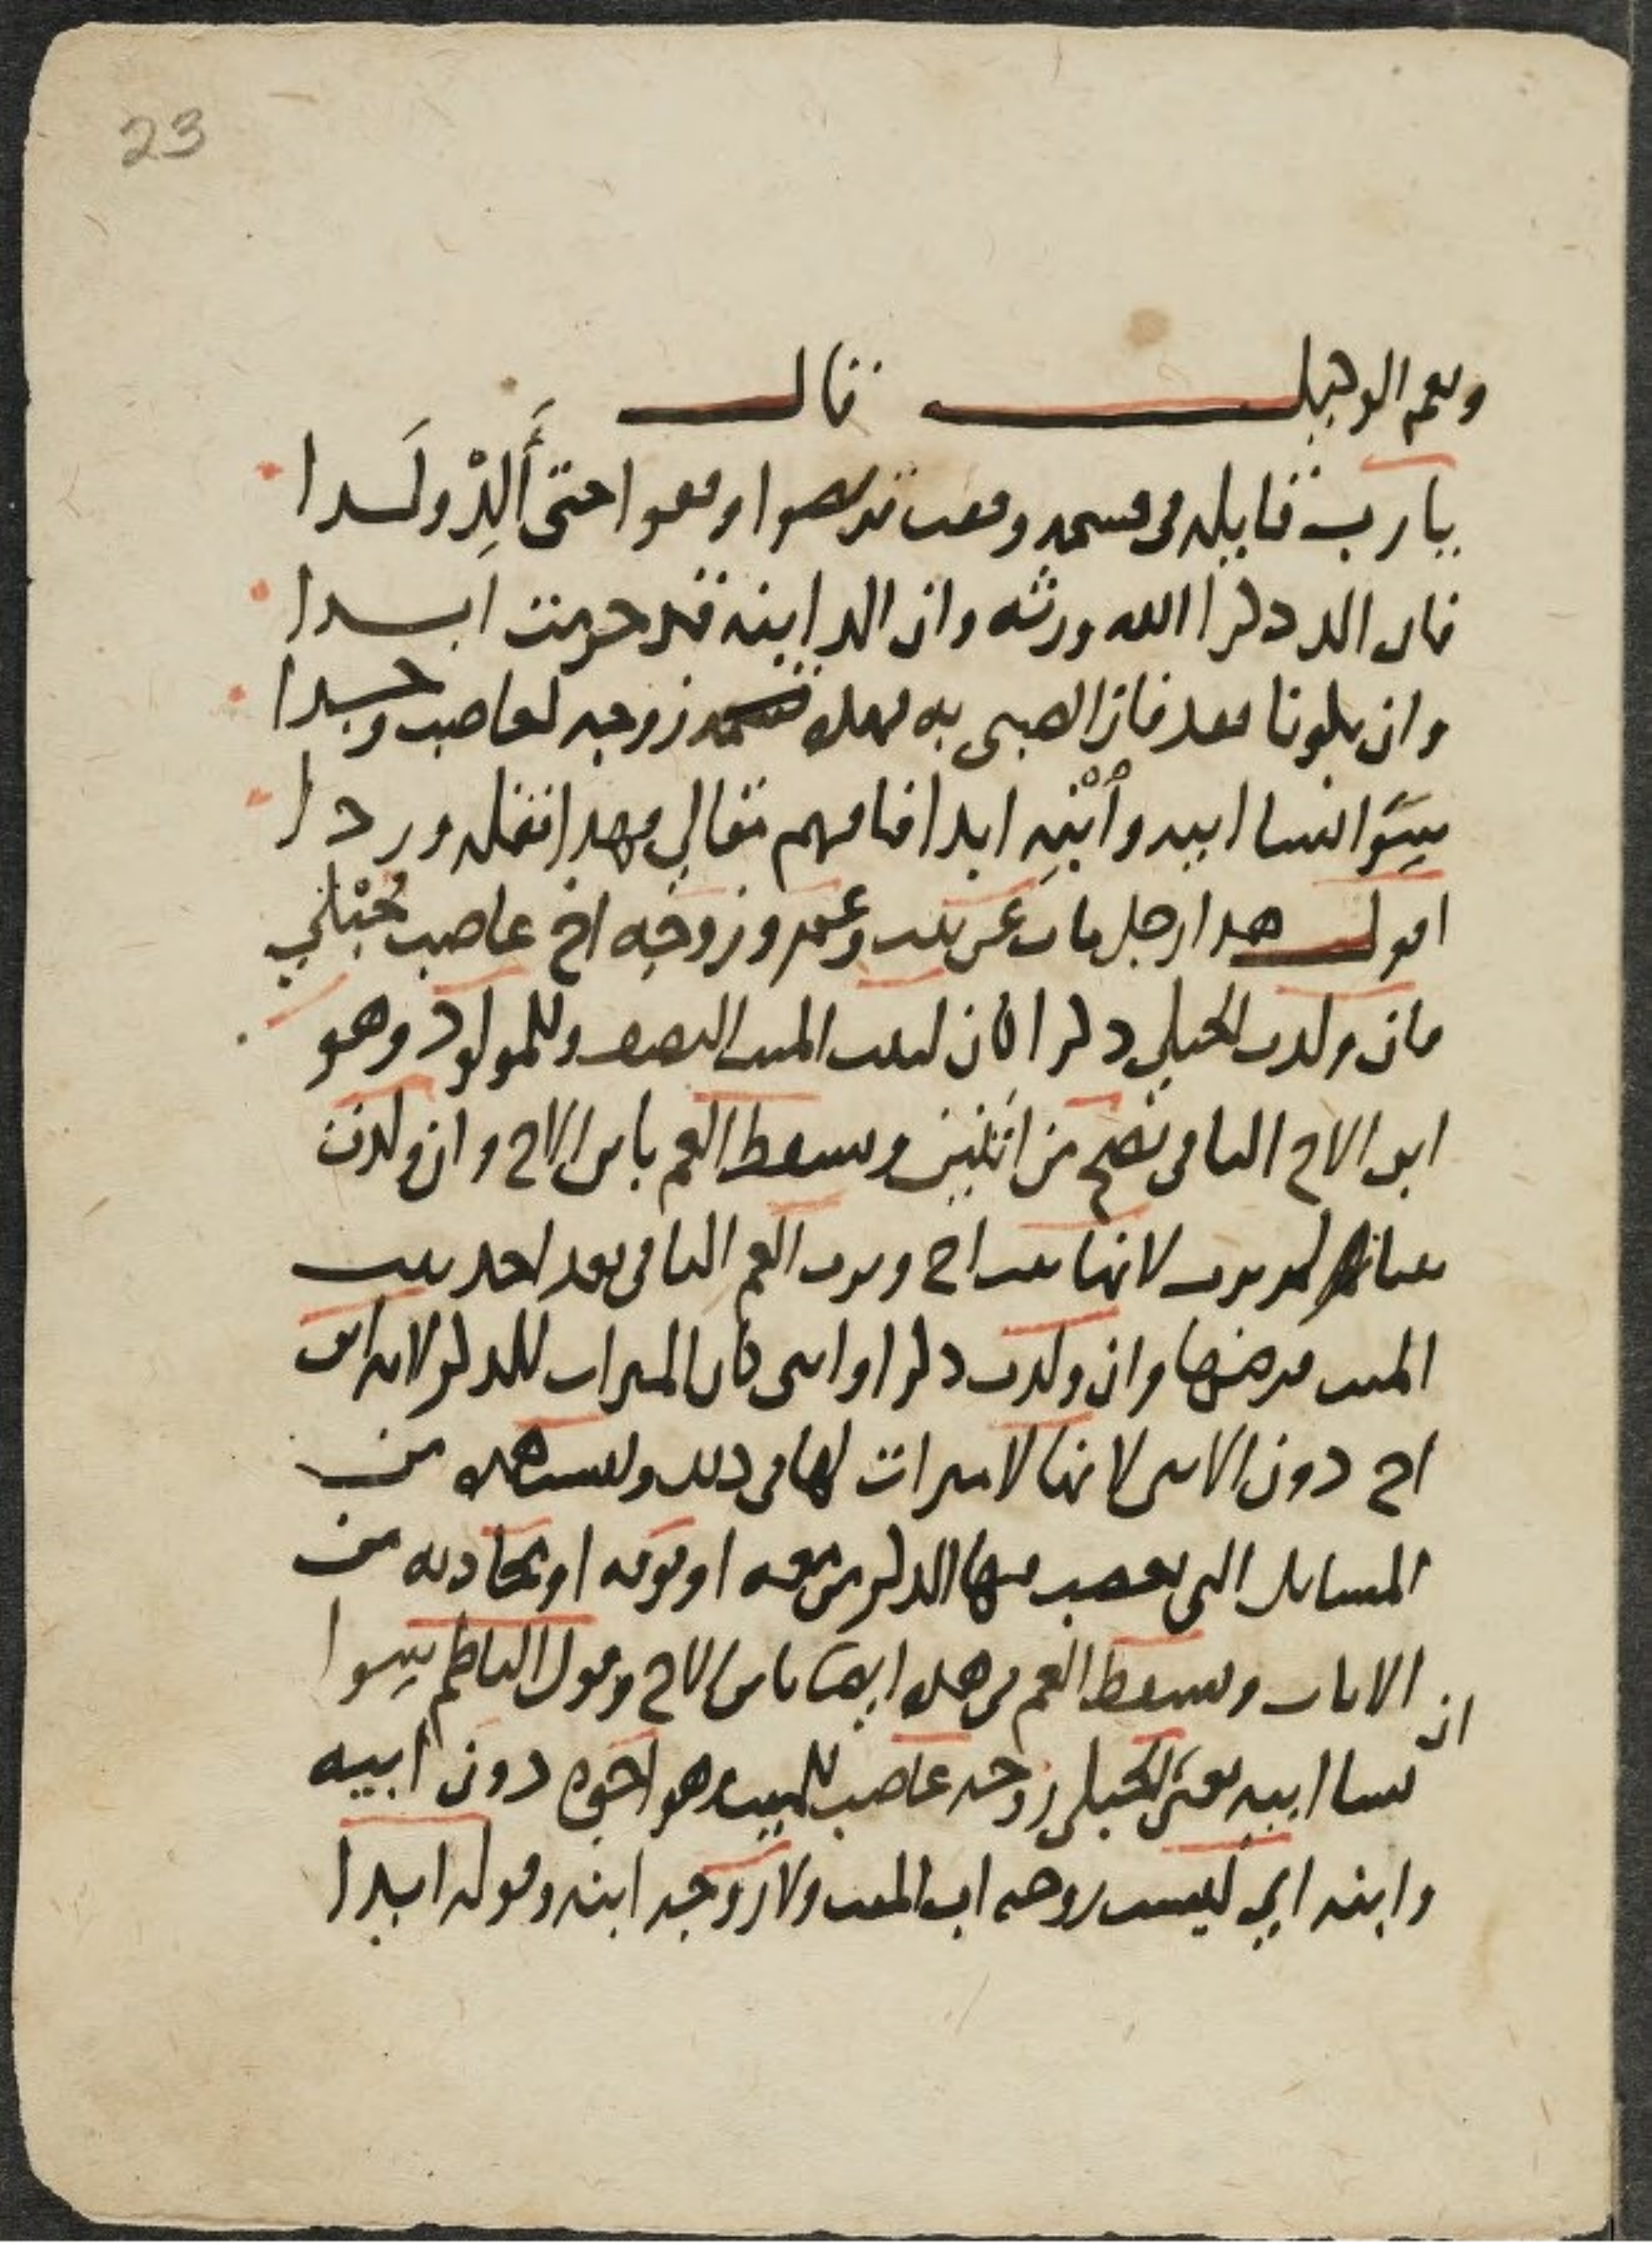 23
ونعم الوكيل قال
يا رب قايله في قسمه وقعت تربصوا وقفوا حتى أَلِدْ ولَدا
فان الد ذكرا الله ورثه وان الد ابنه قد حرمت ابدا
وان يكونا معا فاز الصبي به فهذه قسمه زوجه لعاصب وجدا
سِوَا نسا ابيه وٱبْنِهِ ابدا فافهم مقالي فهذا نقله وردا
اقول هذا رجل مات عن بنت وعم وزوجه اخ عاصب حُبْلَي
فان ولدت الحبلي ذكرا كان لبنت الميت النصف وللمولود وهو
ابن الاخ الباقي تصح من اثنين ويسقط العم بابن الاخ وان ولدت
لم يرث لانها بنت اخ ويرث العم الباقي بعد اخذ بنت
الميت فرضها وان ولدت ذكرا وانثى كان الميراث للذكر لانه ابن
اخ دون الانثى لانها لا ميراث لها في ذلك وليست هذه من
المسايل التي يعصب فيها الذكر من معه او فوقه او يحاذيه من
الاناث ويسقط العم في هذه ايضا بابن الاخ وقول الناظم سِوا
ان نسا ابيه يعني الحبلى زوجه عاصب للميت هو اخوه دون ابيه
وابنه اي ليست زوجه اب الميت ولا زوجه ابنه وقوله ابدا